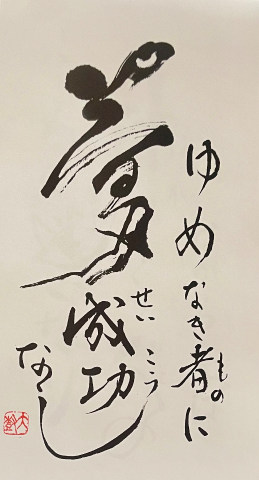 夢
ゆめなき者に
もの
成功
せいこう
なし